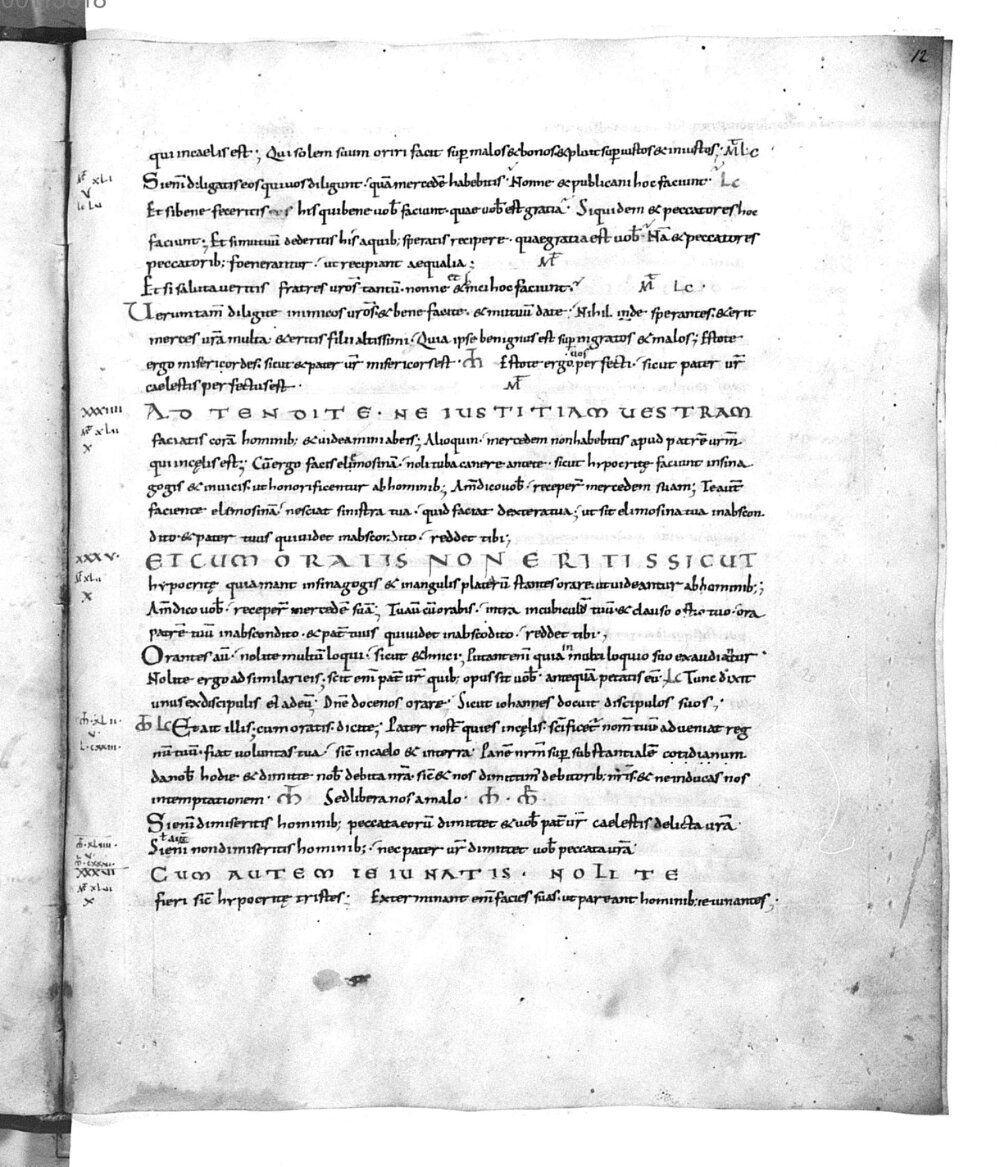 12
qui incaelis est ; Qui solem suum oriri facit sup malos & bonos & pluit sup iustos & iniustos ; M̄ Lc
Mt XLI
V
Lc LII
Sienī diligatis eos qui uos diligunt · quā mercedē habebitis · Nonne & publicani hoc faciunt · Lc
Et si bene feceritis his qui bene uob̄ faciunt · quae uob̄ est gratia · Siquidem & peccatores hoc
faciunt ; Et si mutuū dederitis his aquib; speratis recipere · quae gratia est uob̄ · Nā & peccatores
peccatorib; foenerantur · ut recipiant aequalia ; M̄t
Et si salutaueritis fratres uros̄ tantū · nonne & hnici hoc faciunt · M̄ Lc ·
Ueruntam̄ diligite inimicos uros̄ · & bene facite · & mutuū date · Nihil inde sperantes · & erit
merces urā multa · & eritis filii altissimi · Quia ipse benignus est sup ingratos & malos ; Estote
ergo misericordes · sicut & pater ur̄ misericors est · m̄ Estote ergo uos perfecti · sicut pater ur̄
caelestis perfectus est · M̄t
XXXIIII
Mt XLII
X
ADTENDITE · NE IUSTITIAM UESTRAM
faciatis corā hominib; & uideamini abeis ; Alioquin · mercedem non habebitis apud patrē urm̄
qui incęlis est ; Cū ergo facis elimosinā · noli tuba canere ante te · sicut hypocritę faciunt insina
gogis & inuicis · ut honorificentur abhominib; Am̄ dico uob̄ · receper̄ mercedem suam ; Te aut̄
faciente elimosinā · nesciat sinistra tua · quid faciat dextera tua ; ut sit elimosina tua inabscon
dito · & pater tuus qui uidet inabscondito · reddet tibi ;
XXXV ·
Mt XLII
X
ET CUM ORATIS NON ERITIS SICUT
hypocritę qui amant insinagogis & inangulis plateru̅ stantes orare · ut uideantur abhominib; ;
Am̄ dico uob̄ · receper̄ mercedē suā ; Tu aut̄ cū orabis · intra incubiculū tuū · & clauso ostio tuo · ora
patrē tuū inabscondito · & pat̄ tuus qui uidet inabscodito · reddet tibi ;
Orantes aut̄ · nolite multū loqui · sicut & hnici ; Putant enī quia in multiloquio suo exaudiantur ·
Nolite ergo adsimilari eis ; scit enī pat̄ ur̄ quib; opus sit uob̄ · antequā petatis eū · Lc Tunc dixit
unus exdiscipulis ei adeū ; Dnē doce nos orare · Sicut iohannes docuit discipulos suos ;
m̄ · XLII ·
V ·
L · CXXIII ·
m̄ Lc Et ait illis ; cum oratis · dicite ; Pater nost̄ qui es incęlis · scificet̄ nom̄ tuū adueniat reg
nū tuū · fiat uoluntas tua · sic̄ incaelo & interra · Panē nrm̄ sup substantialē cotidianum
da nob̄ hodie · & dimitte nob̄ debita nrā · sic̄ & nos dimittim̄ debitorib; nris̄ · & ne inducas nos
intemptationem · m̄ Sed libera nos amalo · m̄ · m̄r̄ ·
Sienī dimiseritis hominib; peccata eorū dimittet & uob̄ pat̄ ur̄ caelestis delicta urā ·
m̄ · XLIIII ·
Si enī non dimiseritis hominib; · nec pater ur̄ dimittet uob̄ peccata urā ·
XXXVI
Mt XLIII
X
CUM AUTEM IEIUNATIS · NOLITE
fieri sic̄ hypocritę tristes ; Exterminant enī facies suas · ut pareant hominib; ieiunantes ;